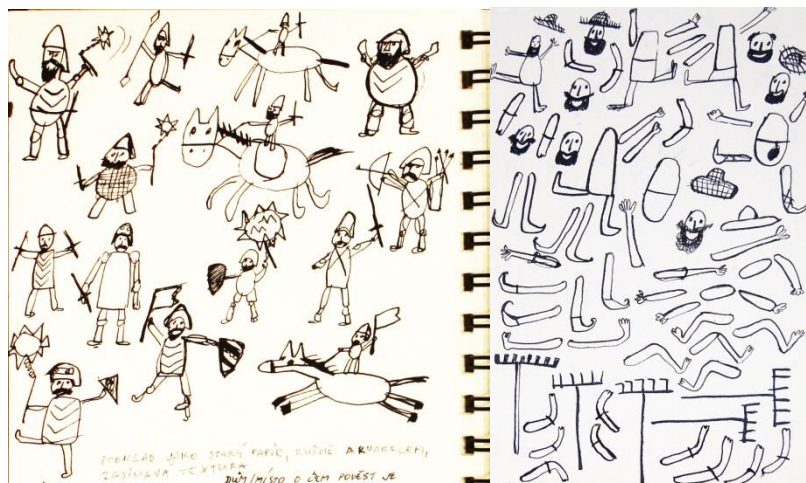 PODKLAD JAKO STARÝ PAPÍR, RUČNĚ AKVARELEM,
ZAJÍMAVÁ TEXTURA
DŮM/MÍSTO O ČEM POVĚST JE